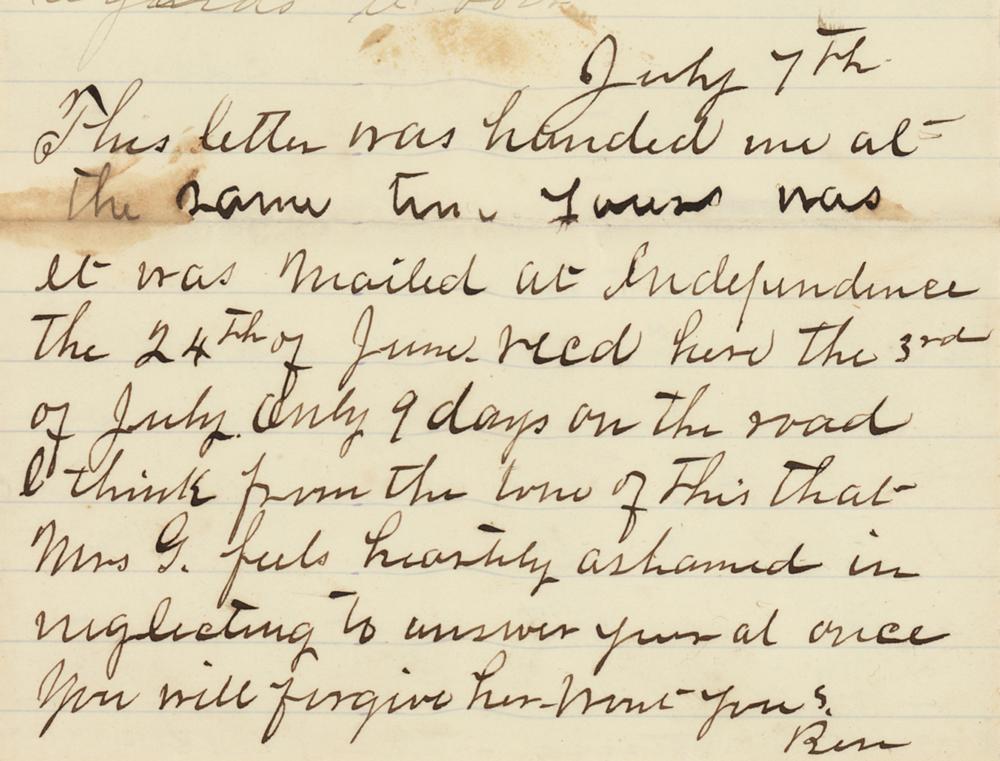 regards to
July 7th
This letter was handed me at
the same time yours was
it was Mailed at Independence
the 24th of June. recd here the 3rd
of July. Only 9 days on the road
I think from the tone of this that
Mrs G. feels heartily ashamed in
neglecting to answer your at once
You will forgive her-Wont you?
Ben